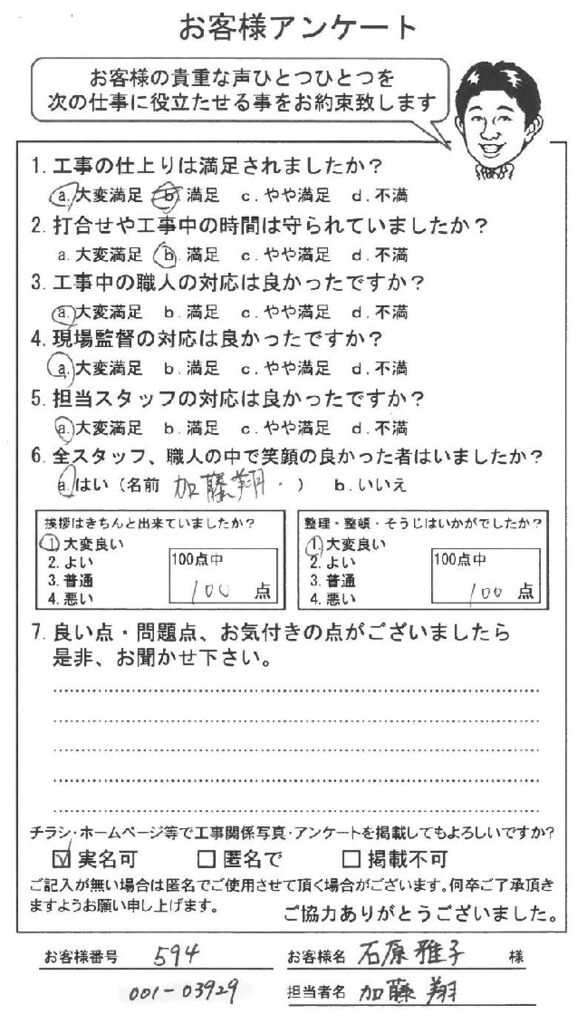 お客様アンケート
お客様の貴重な声ひとつひとつを
次の仕事に役立たせる事をお約束致します
1. 工事の仕上りは満足されましたか?
a. 大変満足 b. 満足 c. やや満足 d. 不満
2. 打合せや工事中の時間は守られていましたか?
a. 大変満足 b. 満足 c. やや満足 d. 不満
3. 工事中の職人の対応は良かったですか?
a. 大変満足 b. 満足 c. やや満足 d. 不満
4. 現場監督の対応は良かったですか?
a. 大変満足 b. 満足 c. やや満足 d. 不満
5. 担当スタッフの対応は良かったですか?
a. 大変満足 b. 満足 c. やや満足 d. 不満
6. 全スタッフ、職人の中で笑顔の良かった者はいましたか?
a. はい (名前 加藤翔 ) b. いいえ
挨拶はきちんと出来ていましたか?
1. 大変良い
2. よい
3. 普通
4. 悪い
100点中
100 点
整理・整頓・そうじはいかがでしたか?
1. 大変良い
2. よい
3. 普通
4. 悪い
100点中
100 点
7. 良い点・問題点、お気付きの点がございましたら
是非、お聞かせ下さい。
チラシ・ホームページ等で工事関係写真・アンケートを掲載してもよろしいですか?
☑ 実名可 □ 匿名で □ 掲載不可
ご記入が無い場合は匿名でご使用させて頂く場合がございます。何卒ご了承頂き
ますようお願い申し上げます。
ご協力ありがとうございました。
お客様番号 594 お客様名 石原雅子 様
001-03929 担当者名 加藤翔